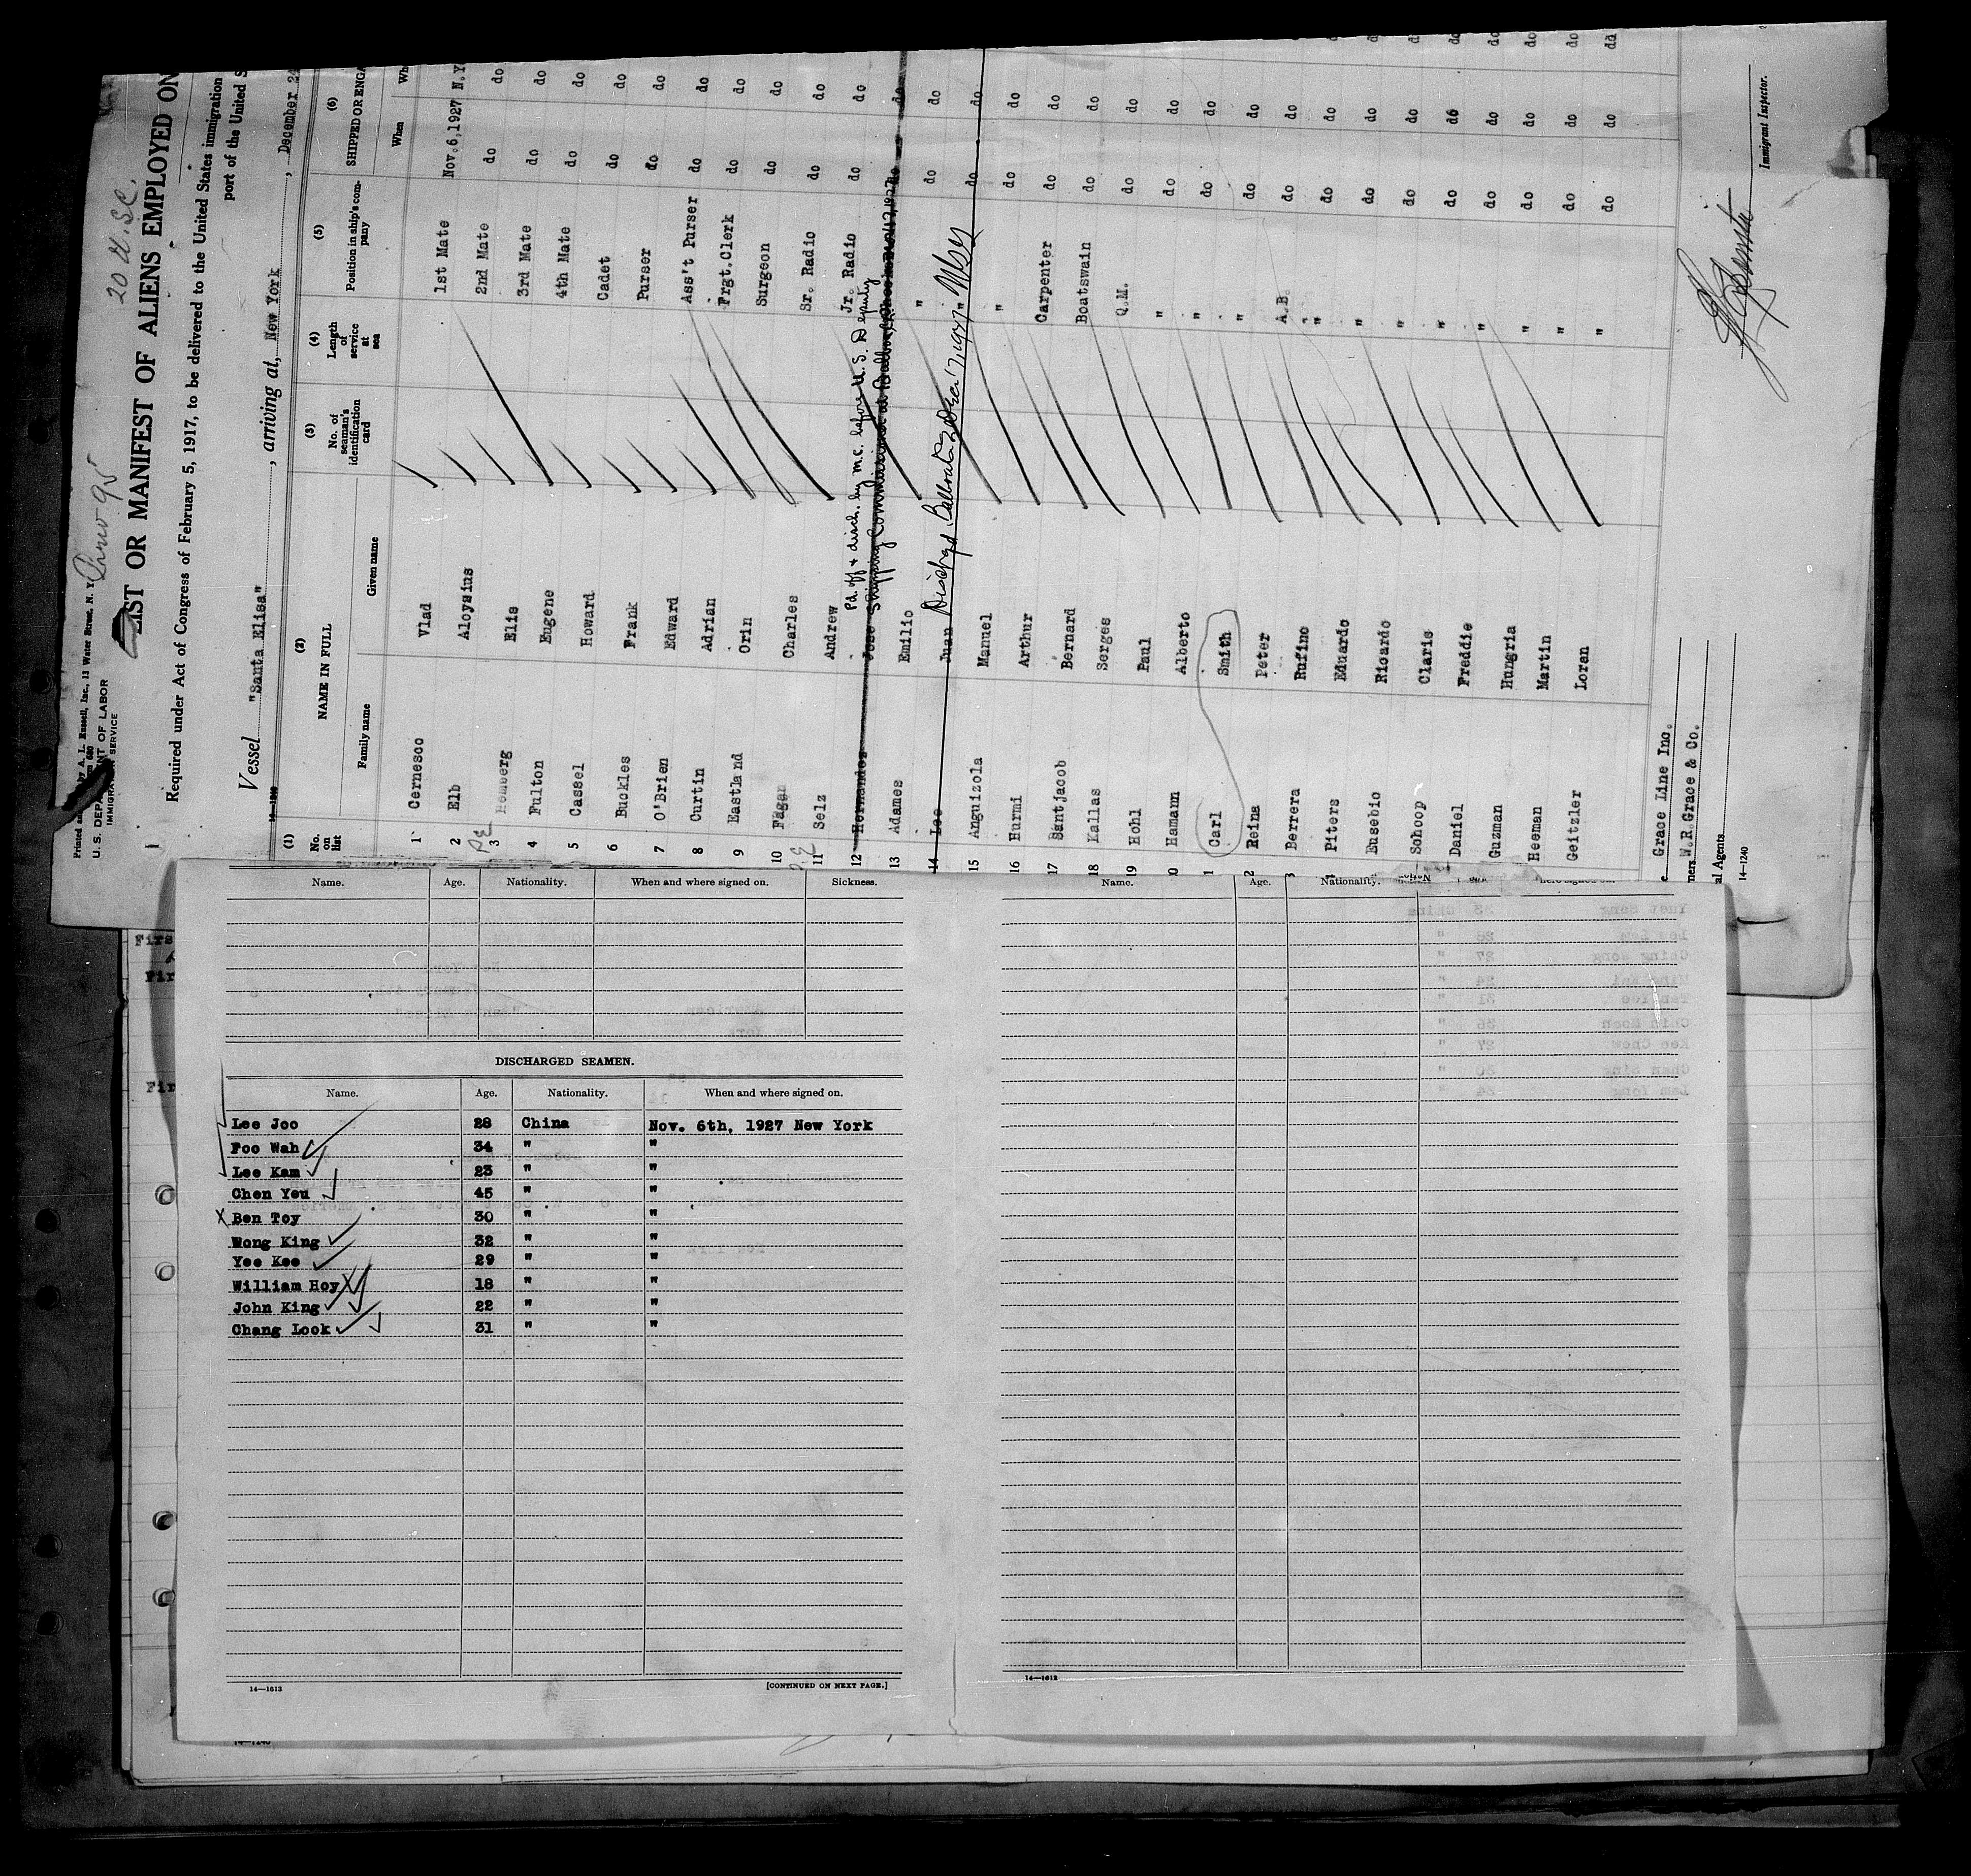 20 U.S.C.
LIST OR MANIFEST OF ALIENS EMPLOYED ON
Required under Act of Congress of February 5, 1917, to be delivered to the United States immigration
port of the United S
Vessel "Santa Elisa", arriving at, New York, December 24
U.S. DEPARTMENT OF LABOR
IMMIGRATION SERVICE
(1) No. on list (2) NAME IN FULL Family name Given name (3) No. of seaman's identification card (4) Length of service at sea (5) Position in ship's company (6) SHIPPED OR ENGA When Wh
1 Cernesco Vlad 1st Mate Nov.6,1927 N.Y
2 Elb Aloysius 2nd Mate do do
3 Homberg Elis 3rd Mate do do
4 Fulton Eugene 4th Mate do do
5 Cassel Howard Cadet do do
6 Buckles Frank Purser do do
7 O'Brien Edward Ass't Purser do do
8 Curtin Adrian Frgt.Clerk do do
9 Eastland Orin Surgeon do do
10 Fagan Charles Sr. Radio do do
11 Selz Andrew Jr. Radio do do
Pd. off & disch. by m.c. before U.S. Deputy
12 Hernandez Jose Shipping Commissioner at Balboa do do
13 Adames Emilio " do do
14 Lee Juan Dischgd Balboa Dec 17, 1927 do do
15 Anguizola Manuel " do do
16 Hurmi Arthur Carpenter do do
17 Santjacob Bernard Boatswain do do
18 Kallas Serges Q.M. do do
19 Hohl Paul " do do
0 Hamann Alberto " do do
1 Carl Smith " do do
2 Reina Peter A.B. do do
3 Berrera Rufino " do do
Piters Eduardo " do do
Eusebio Ricardo " do do
Schoop Claris " do do
Daniel Freddie " do do
Guzman Hungria " do do
Heeman Martin " do do
Geitzler Loran " do do
Grace Line Inc.
ners W.R.Grace & Co.
al Agents
14-1240
Immigrant Inspector.
Firs
Fir
Fir
Name. Age. Nationality. When and where signed on. Sickness.
DISCHARGED SEAMEN.
Name. Age. Nationality. When and where signed on.
Lee Joo 28 China Nov. 6th, 1927 New York
Foo Wah 34 " "
Lee Kam 23 " "
Chen You 45 " "
X Ben Toy 30 " "
Wong King 32 " "
Yee Kee 29 " "
William Hoy 18 " "
John King 22 " "
Chang Look 31 " "
14—1613 [CONTINUED ON NEXT PAGE.]
Name. Age. Nationality.
14—1612